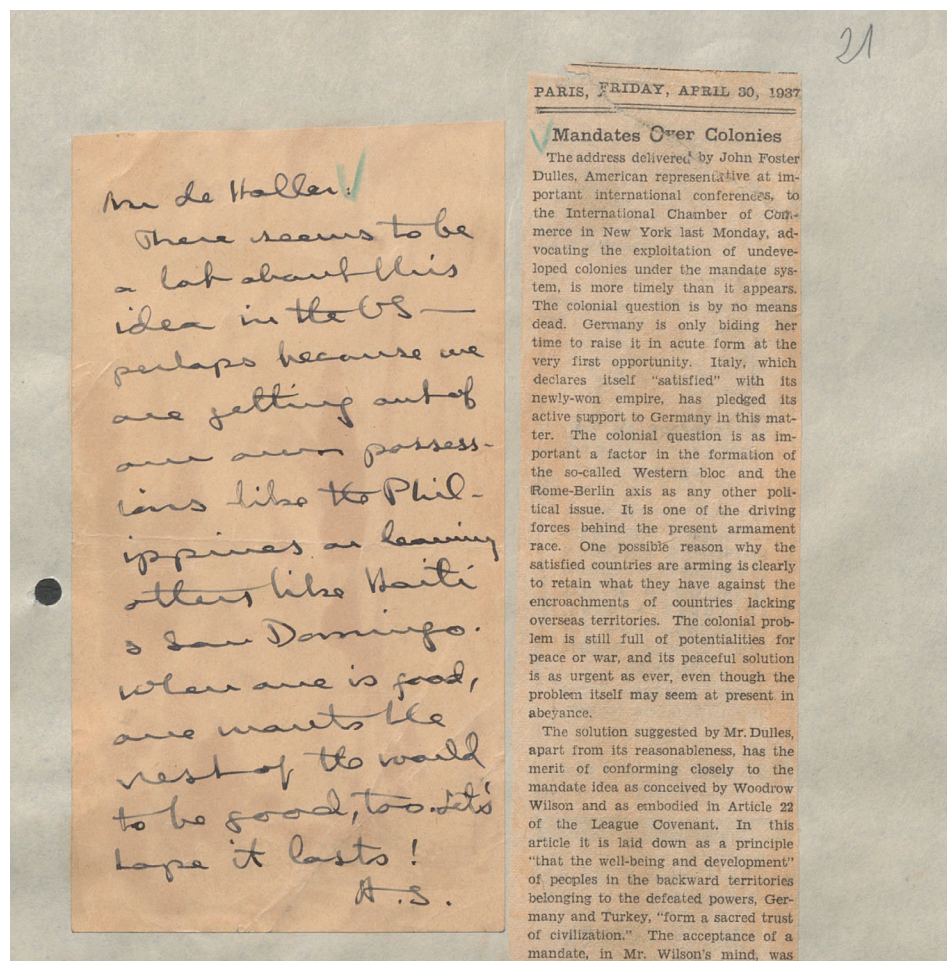 21
Mr de Haller:
There seems to be
a lot about this
idea in the US —
perhaps because we
are getting out of
our own possess-
ions like the Phil-
ippines or leaving
others like Haiti
& San Domingo.
When one is good,
one wants the
rest of the world
to be good, too. Let's
hope it lasts!
A.S.
PARIS, FRIDAY, APRIL 30, 1937
Mandates Over Colonies
The address delivered by John Foster
Dulles, American representative at im-
portant international conferences, to
the International Chamber of Com-
merce in New York last Monday, ad-
vocating the exploitation of undeve-
loped colonies under the mandate sys-
tem, is more timely than it appears.
The colonial question is by no means
dead. Germany is only biding her
time to raise it in acute form at the
very first opportunity. Italy, which
declares itself "satisfied" with its
newly-won empire, has pledged its
active support to Germany in this mat-
ter. The colonial question is as im-
portant a factor in the formation of
the so-called Western bloc and the
Rome-Berlin axis as any other poli-
tical issue. It is one of the driving
forces behind the present armament
race. One possible reason why the
satisfied countries are arming is clearly
to retain what they have against the
encroachments of countries lacking
overseas territories. The colonial prob-
lem is still full of potentialities for
peace or war, and its peaceful solution
is as urgent as ever, even though the
problem itself may seem at present in
abeyance.
The solution suggested by Mr. Dulles,
apart from its reasonableness, has the
merit of conforming closely to the
mandate idea as conceived by Woodrow
Wilson and as embodied in Article 22
of the League Covenant. In this
article it is laid down as a principle
"that the well-being and development"
of peoples in the backward territories
belonging to the defeated powers, Ger-
many and Turkey, "form a sacred trust
of civilization." The acceptance of a
mandate, in Mr. Wilson's mind, was